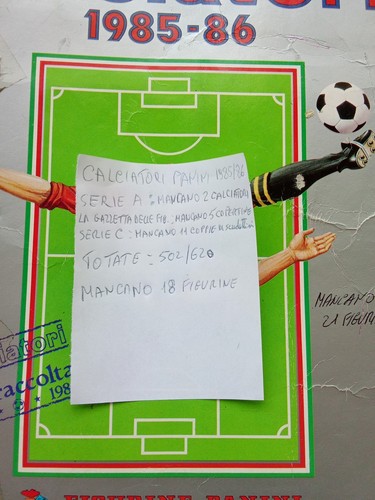 1985-86
CALCIATORI PANINI 1985/86
SERIE A : MANCANO 2 CALCIATORI
LA GAZZETTA DELLE FIG. : MANCANO 5 COPERTINE
SERIE C : MANCANO 11 COPPIE
TOTATE = 502/620
MANCANO 18 FIGURINE
MANCANO
21 FIGURI
iatori
raccolta
198
FIGURINE PANINI